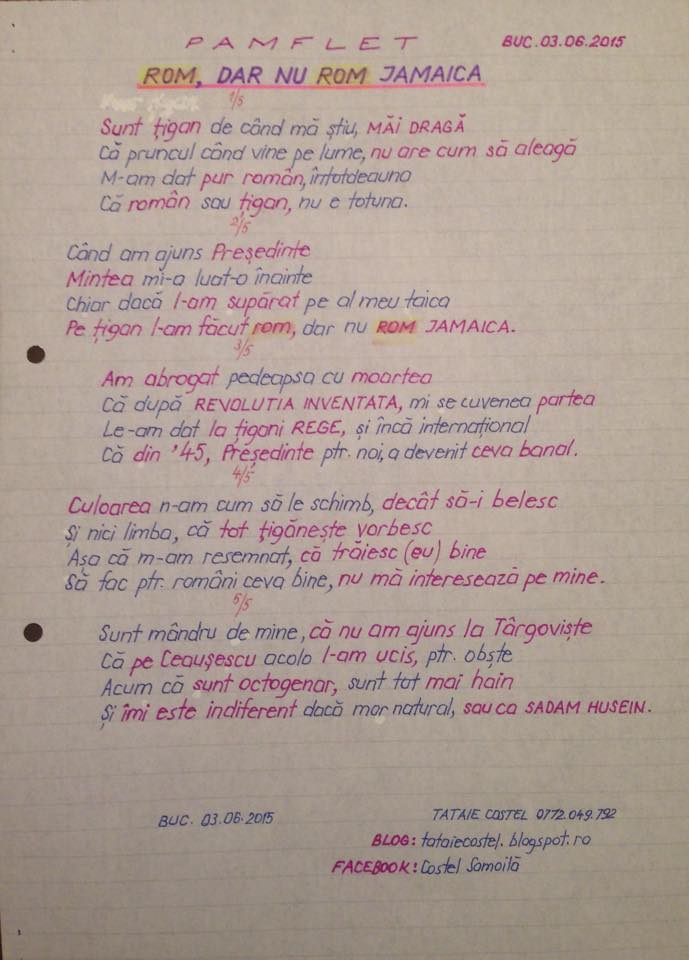 PAMFLET BUC. 03.06.2015
ROM, DAR NU ROM JAMAICA
1/5
Sunt țigan de când mă știu, MĂI DRAGĂ
Că pruncul când vine pe lume, nu are cum să aleagă
M-am dat pur român, întotdeauna
Că român sau țigan, nu e totuna.
2/5
Când am ajuns Președinte
Mintea mi-a luat-o înainte
Chiar dacă l-am supărat pe al meu taica
Pe țigan l-am făcut rom, dar nu ROM JAMAICA.
3/5
Am abrogat pedeapsa cu moartea
Că după REVOLUTIA INVENTATA, mi se cuvenea partea
Le-am dat la țigani REGE, și încă internațional
Că din '45, Președinte ptr. noi, a devenit ceva banal.
4/5
Culoarea n-am cum să le schimb, decât să-i belesc
Și nici limba, că tot țigănește vorbesc
Așa că m-am resemnat, că trăiesc (eu) bine
Să fac ptr. români ceva bine, nu mă interesează pe mine.
5/5
Sunt mândru de mine, că nu am ajuns la Târgoviște
Că pe Ceaușescu acolo l-am ucis, ptr. obște
Acum că sunt octogenar, sunt tot mai hain
Și îmi este indiferent dacă mor natural, sau ca SADAM HUSEIN.
BUC. 03.06.2015 TATAIE COSTEL 0772.049.792
BLOG: tataiecostel.blogspot.ro
FACEBOOK: Costel Samoilă